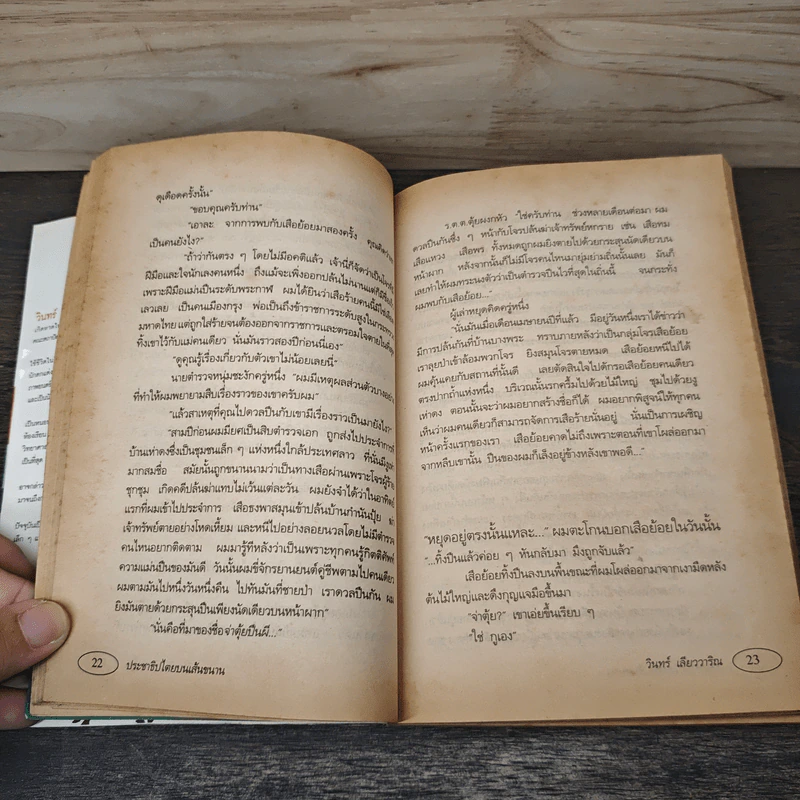 ดุเดือดครั้งนั้น"
"ขอบคุณครับท่าน"
"เอาละ จากการพบกับเสือย้อยมาสองครั้ง คุณคิดว่า
เป็นคนยังไง?"
"ถ้าว่ากันตรง ๆ โดยไม่มีอคติแล้ว เจ้านี่ก็จัดว่าเป็น
ฝีมือและใจนักเลงคนหนึ่ง ถึงแม้จะเพิ่งออกปล้นไม่นานแต่ก็มี
เพราะฝีมือแม่นปืนระดับพระกาฬ ผมได้ยินว่าเสือร้ายคนนี้ใช่
เลวเลย เป็นคนเมืองกรุง พ่อเป็นถึงข้าราชการระดับสูงในกระทรวง
มหาดไทย แต่ถูกใส่ร้ายจนต้องออกจากราชการและตรอมใจตายในที่สุด
ทิ้งเขาไว้กับแม่คนเดียว นั่นมันราวสองปีก่อนนี่เอง"
"ดูคุณรู้เรื่องเกี่ยวกับตัวเขาไม่น้อยเลยนี่"
นายตำรวจหนุ่มชะงักครู่หนึ่ง "ผมมีเหตุผลส่วนตัวบางอย่าง
ที่ทำให้ผมพยายามสืบเรื่องราวของเขาครับผม"
"แล้วสาเหตุที่คุณไปดวลปืนกับเขามีเรื่องราวเป็นมายังไง?"
"สามปีก่อนผมมียศเป็นสิบตำรวจเอก ถูกส่งไปประจำการที่
บ้านเห่าดงซึ่งเป็นชุมชนเล็ก ๆ แห่งหนึ่งใกล้ประเทศลาว ที่นั่นมีงูเห่า
มากสมชื่อ สมัยนั้นถูกขนานนามว่าเป็นทางเสือผ่านเพราะโจรผู้ร้าย
ชุกชุม เกิดคดีปล้นฆ่าแทบไม่เว้นแต่ละวัน ผมยังจำได้ว่าในอาทิตย์
แรกที่ผมเข้าไปประจำการ เสือธงพาสมุนเข้าปล้นบ้านกำนันปุ้ย ฆ่า
เจ้าทรัพย์ตายอย่างโหดเหี้ยม และหนีไปอย่างลอยนวลโดยไม่มีตำรวจ
คนไหนอยากติดตาม ผมมารู้ทีหลังว่าเป็นเพราะทุกคนรู้กิตติศัพท์
ความแม่นปืนของมันดี วันนั้นผมขี่จักรยานยนต์คู่ชีพตามไปคนเดียว
ผมตามมันไปหนึ่งวันหนึ่งคืน ไปทันมันที่ชายป่า เราดวลปืนกัน ผม
ยิงมันตายด้วยกระสุนปืนเพียงนัดเดียวบนหน้าผาก"
"นั่นคือที่มาของชื่อจ่าตุ้ยปืนผี..."
22 ประชาธิปไตยบนเส้นขนาน
ร.ต.ต.ตุ้ยผงกหัว "ใช่ครับท่าน ช่วงหลายเดือนต่อมา ผม
ดวลปืนกันซึ่ง ๆ หน้ากับโจรปล้นฆ่าเจ้าทรัพย์หกราย เช่น เสือทม
เสือแหวง เสือพร ทั้งหมดถูกผมยิงตายไปด้วยกระสุนนัดเดียวบน
หน้าผาก หลังจากนั้นก็ไม่มีโจรคนไหนมายุ่มย่ามถิ่นนั้นเลย มันก็
เลยทำให้ผมกระหนาบตัวว่าเป็นตำรวจปืนไวที่สุดในถิ่นนี้ จนกระทั่ง
ผมพบกับเสือย้อย..."
ผู้เล่าหยุดคิดครู่หนึ่ง
"นั่นมันเมื่อเดือนเมษายนปีที่แล้ว มีอยู่วันหนึ่งเราได้ข่าวว่า
มีการปล้นกันที่บ้านบางพระ ทราบภายหลังว่าเป็นกลุ่มโจรเสือย้อย
เราลุยป่าเข้าล้อมพวกโจร ยิงสมุนโจรตายหมด เสือย้อยหนีไปได้
ผมคุ้นเคยกับสถานที่นั้นดี เลยตัดสินใจไปดักรอเสือย้อยคนเดียว
ตรงปากถ้ำแห่งหนึ่ง บริเวณนั้นรกครึ้มไปด้วยไม้ใหญ่ ชุมไปด้วยงู
เห่าดง ตอนนั้นจะว่าผมอยากสร้างชื่อก็ได้ ผมอยากพิสูจน์ให้ทุกคน
เห็นว่าผมคนเดียวก็สามารถจัดการเสือร้ายนั่นอยู่ นั่นเป็นการเผชิญ
หน้าครั้งแรกของเรา เสือย้อยคาดไม่ถึงเพราะตอนที่เขาโผล่ออกมา
จากหลืบเขานั้น ปืนของผมก็เล็งอยู่ข้างหลังเขาพอดี..."
"หยุดอยู่ตรงนั้นแหละ..." ผมตะโกนบอกเสือย้อยในวันนั้น
"...ทิ้งปืนแล้วค่อย ๆ หันกลับมา มึงถูกจับแล้ว"
เสือย้อยทิ้งปืนลงบนพื้นขณะที่ผมโผล่ออกมาจากเงามืดหลัง
ต้นไม้ใหญ่และดึงกุญแจมือขึ้นมา
"จ่าตุ้ย?" เขาเอ่ยขึ้นเรียบ ๆ
"ใช่ กูเอง"
วินทร์ เลียววาริณ 23